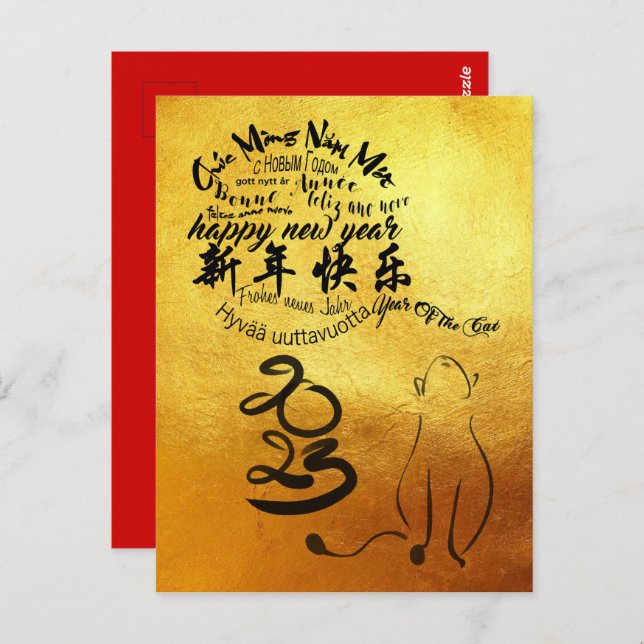 zzle
Chúc Mừng Năm Mới
с Новым Годом
gott nytt år Année
Bonne feliz ano novo
happy new year
新年快乐
Frohes neues Jahr
Year Of The Cat
Hyvää uuttavuotta
2023